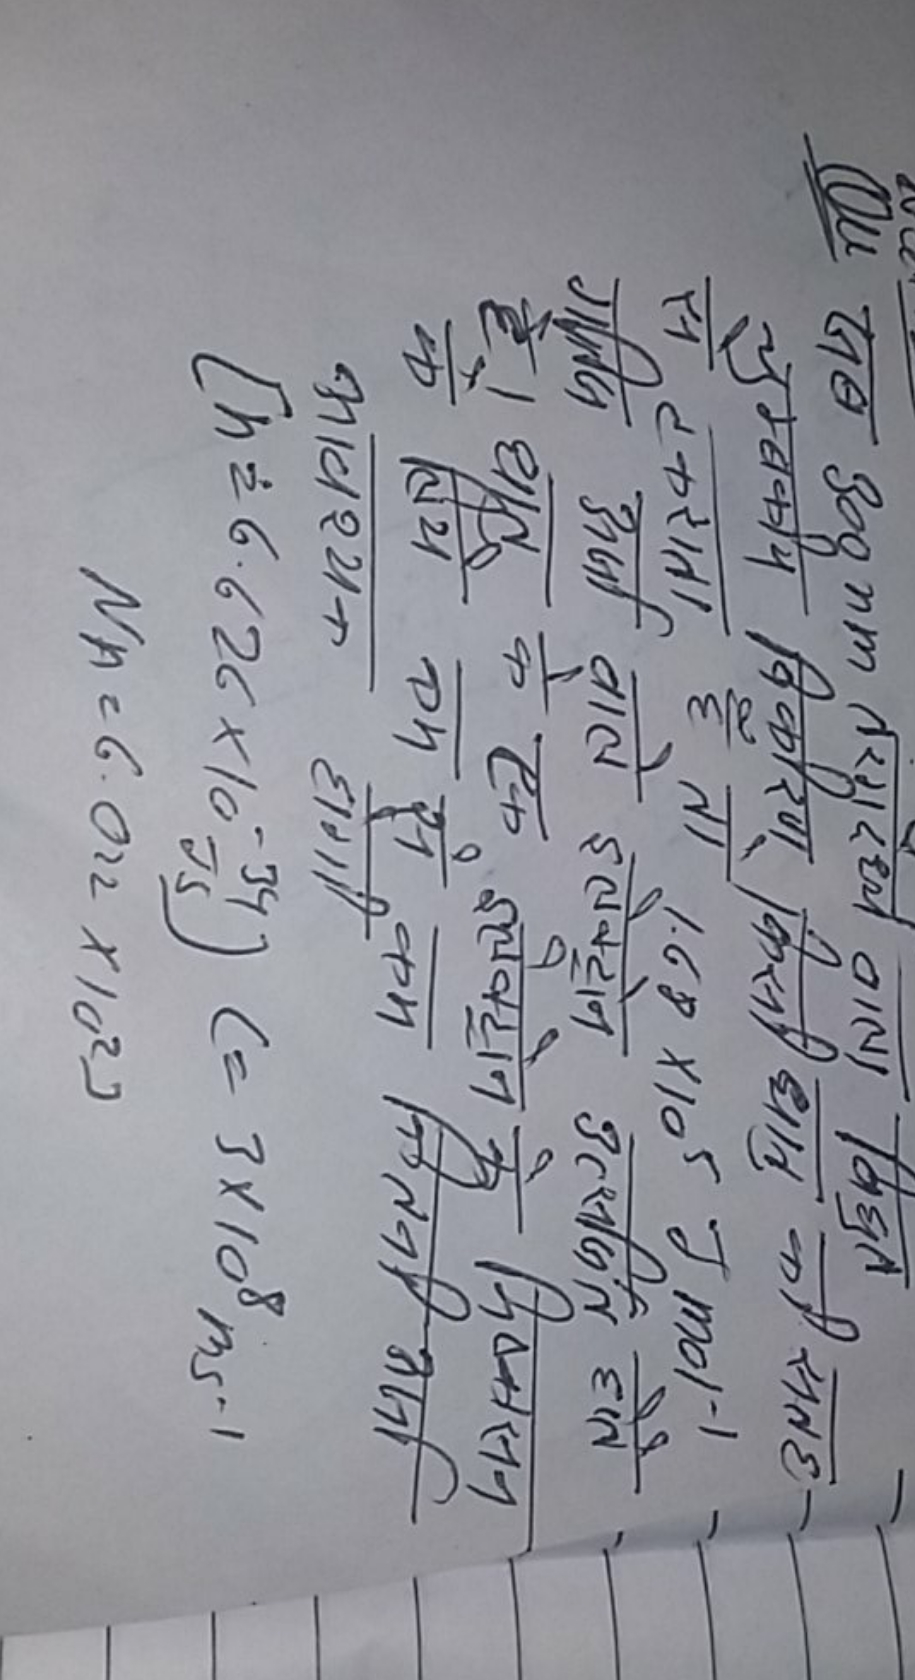 Qu जब 300 nm तरंगदैर्ध्य वाला विद्युत
चुम्बकीय विकिरण किसी धातु की सतह
से टकराता है तो 1.68 X 10 5 J mol -1
गतिज ऊर्जा वाले इलेक्ट्रॉन उत्सर्जित होते
हैं। धातु के एक इलेक्ट्रॉन को निकालने
के लिए कम से कम कितनी ऊर्जा
आवश्यक होगी
[h = 6.626 X 10 -34 JS) C = 3 X 10 8 ms -1
NA = 6.022 X 10 23